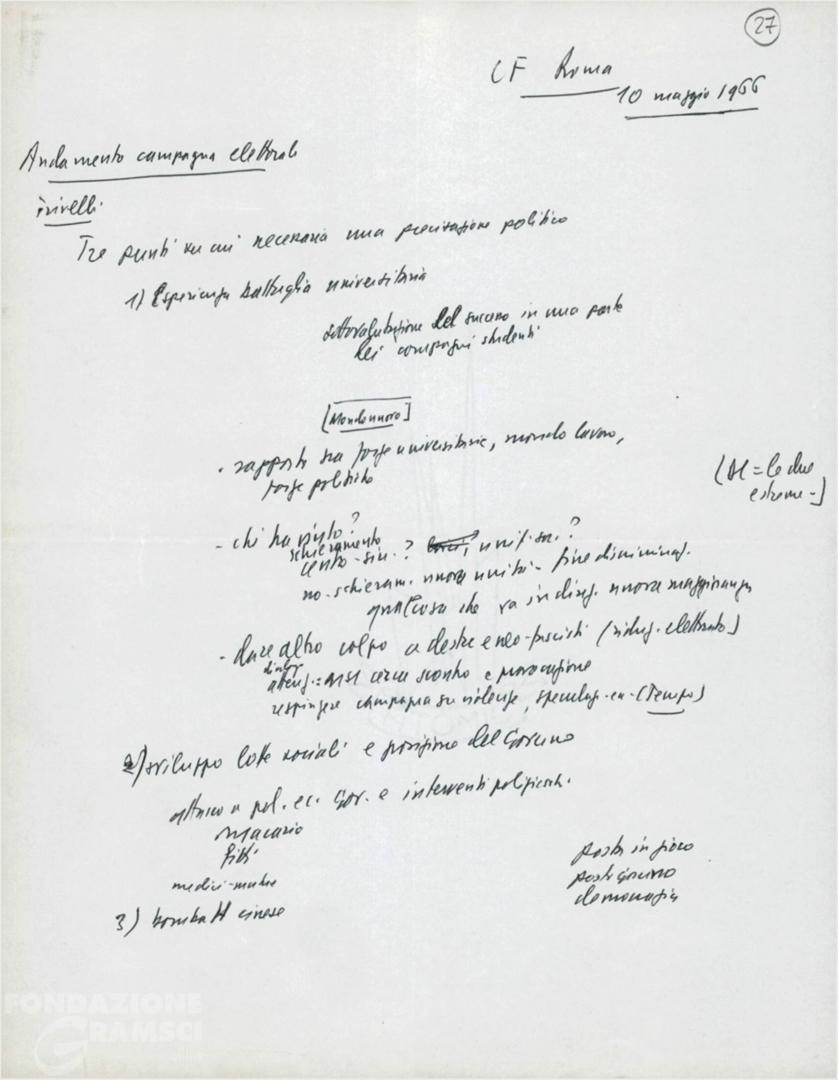 27
CF Roma
10 maggio 1966
Andamento campagna elettorale
Trivelli
Tre punti su cui necessaria una precisazione politica
1) Esperienza battaglia universitaria
sottovalutazione del successo in una parte
dei compagni studenti
[Mondonuovo]
- rapporto tra forze universitarie, mondo lavoro,
forze politiche
( = le due
estreme -)
- chi ha vinto?
schieramento
centro-sin.? unif. soc.?
no - schieram. nuova unità - fine discriminaz.
qualcosa che va in direz. nuova maggioranza
- dare altro colpo a destre e neo-fascisti (riduz. elettorato)
attenz.: MSI cerca scontro e provocazione
respingere campagna su violenze, speculaz. (Tempo)
2) sviluppo lotte sociali e posizione del Governo
attacco a pol. ec. Gov. e interventi polizieschi.
Macario
fitti
medici-mutue
posta in gioco
democrazia
3) bomba H cinese
FONDAZIONE
GRAMSCI